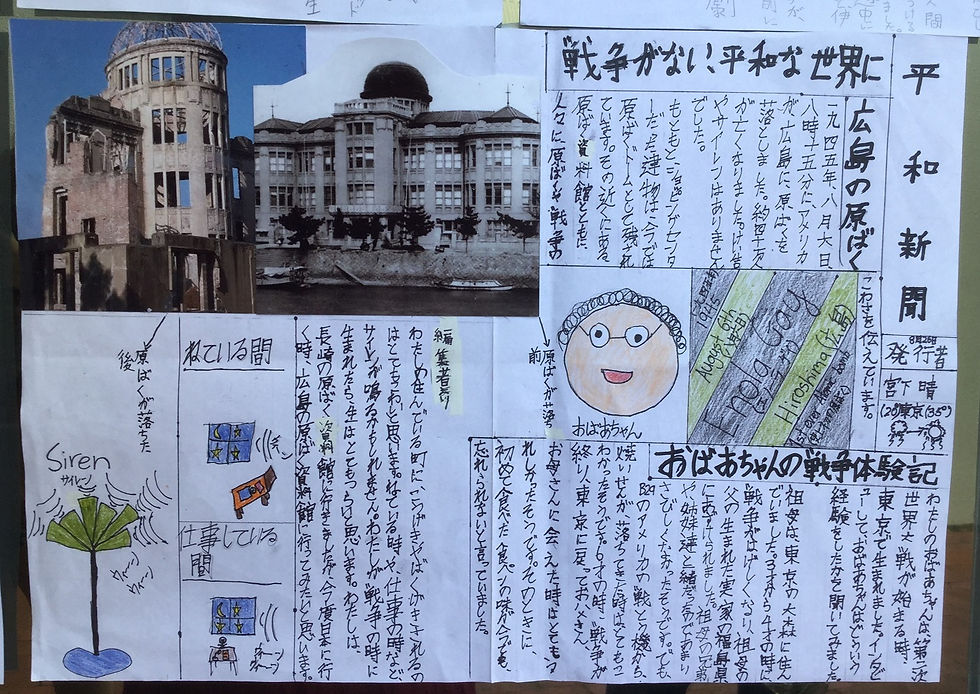 平和新聞
8月26日
発行者
宮下 晴
戦争がない、平和な世界に
広島の原ばく
一九四五年、八月六日、
八時十五分にアメリカ
が、広島に、原ばくを
落としました。約四十万人
が亡くなりました。けい告
やサイレンはありません
でした。
しだった建物は今では
原ばくドームとして残され
ています。その近くにある、
原ばく資料館とともに、
人々に原ばくや戦争の
こわさを伝えています。
August 6th
1945
Enola Gay
Hiroshima (広島)
1st ever Atomic bomb
おばあちゃん
原ばくが落ち
前
原ばくが落ちた
後
おばあちゃんの戦争体験記
わたしのおばあちゃんは第二次
世界大戦が始まる時、
東京で生まれました。インタビ
ューして、おばあちゃんはどういう
経験をしたかを聞いてみました。
祖母は、東京の大森に住ん
でいました。3才から4才の時に
戦争がはげしくなり、祖母の
父の生まれた実家の福島県
にあずけられました。祖母の兄弟
や姉妹達と一緒だったのであまり
さびしくなかったそうです。でも、
B29のアメリカの戦とう機から、
焼いせんが落ちてきた時はとてもこ
わかったそうです。6才の時、戦争が
終り、東京に戻ってお父さん、
お母さんに会えた時はとてもう
れしかったそうです。そのときに、
初めて食べた食パンの味が今でも、
忘れられないと言っていました。
編集者より
わたしの住んでいる町に、こうげきやばくげきされるの
はとてもこわいと思います。ねている時や、仕事の時など
サイレンが鳴るかもしれません。わたしが戦争の時に
生まれたら、人生はとてもつらいと思います。わたしは、
長崎の原ばく資料館に行きましたが、今度日本に行
く時、広島の原ばく資料館へ行ってみたいと思います。
ねている間
仕事している
間
Siren
サイレン
ウィーン
ウィーン